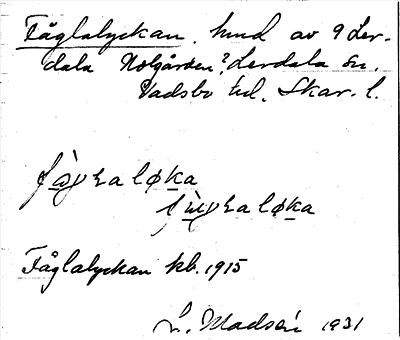 Fåglalyckan. hmd av 9 Ler-
dala Nolgården?, Lerdala sn.
Vadsbo hd, Skar. l.
Fåglalyckan kb. 1915
L. Madsén 1931